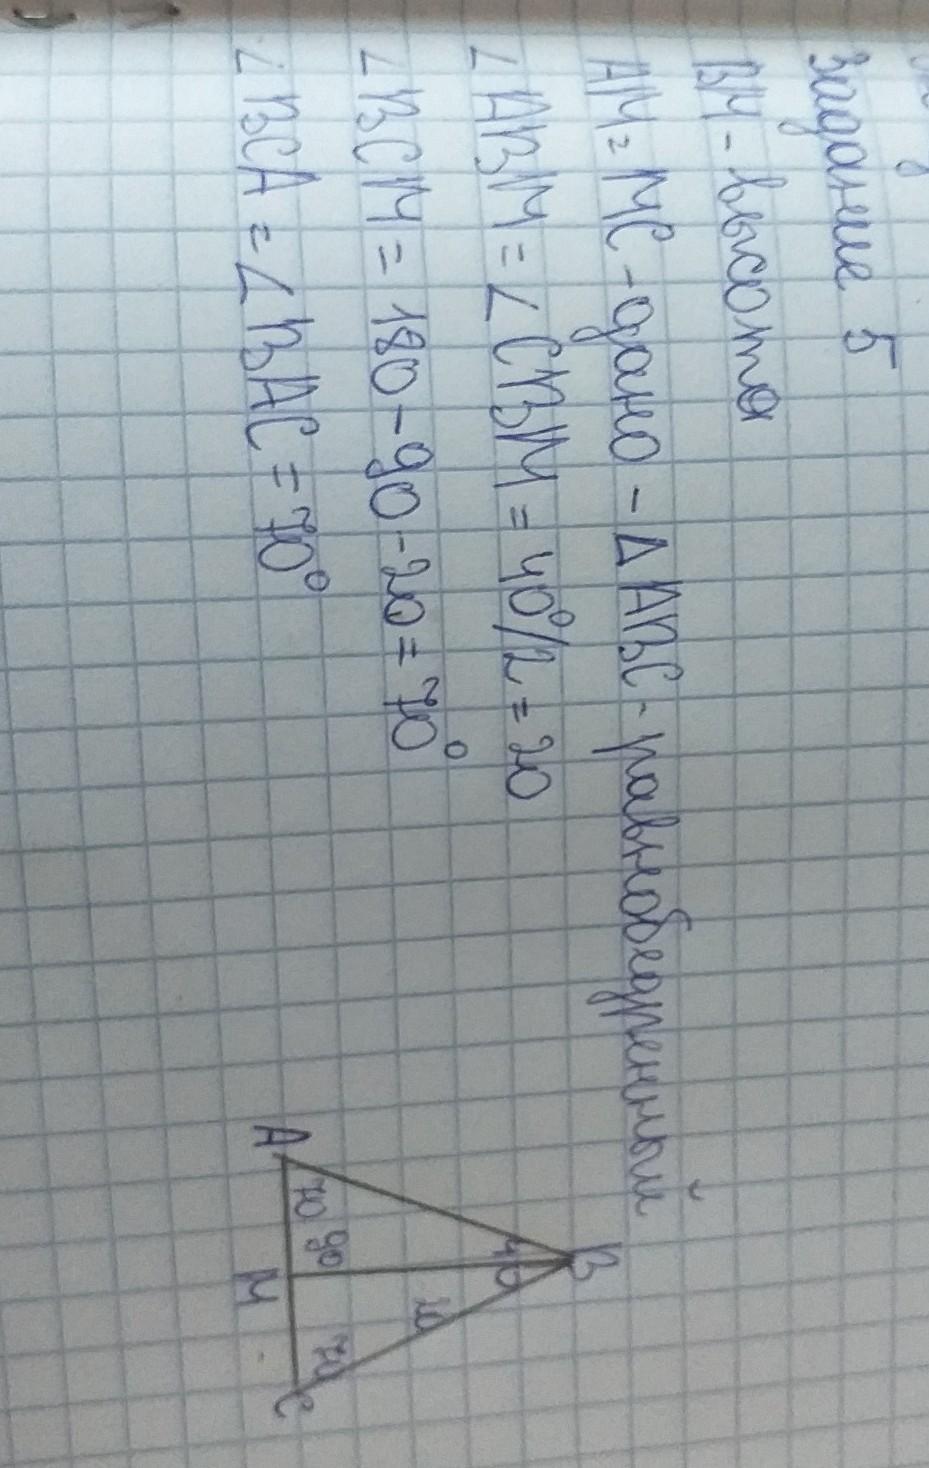 Задание 5
BM - высота
AM = MC - дано - Δ ABC - равнобедренный
∠ ABM = ∠ CBM = 40°/2 = 20
∠ BCM = 180 - 90 - 20 = 70°
∠ BCA = ∠ BAC = 70°
B
40
20
70 90 70
A M C